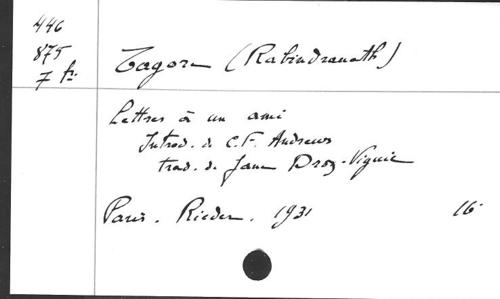 446
875
7 fr
Tagore (Rabindranath)
Lettres à un ami
Introd. de C.F. Andrews
trad. de Jane Droz-Viguié
Paris. Rieder. 1931 16°